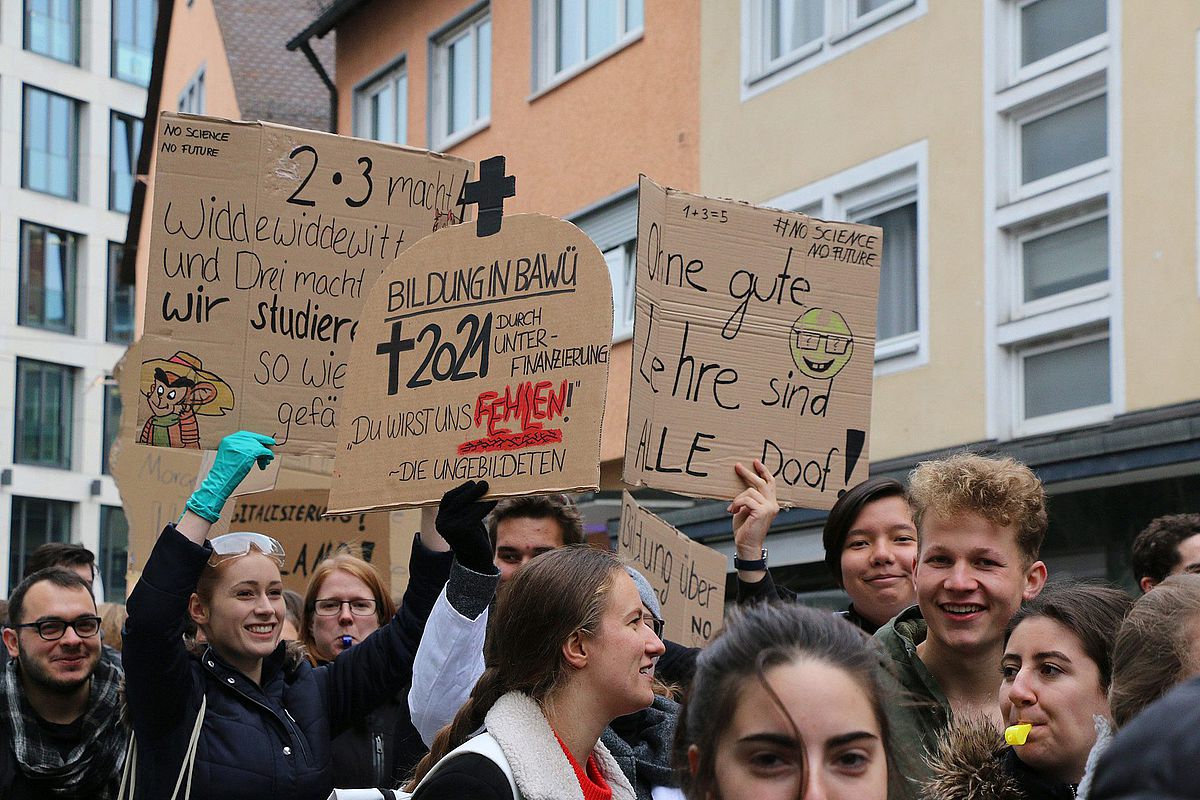 NO SCIENCE
NO FUTURE
2·3 macht
widdewiddewitt
und Drei macht
wir studieren
so wie
gefä
BILDUNG IN BAWÜ
✝2021 DURCH
UNTER-
FINANZIERUNG
"DU WIRST UNS FEHLEN!"
~DIE UNGEBILDETEN
1+3=5
#NO SCIENCE
NO FUTURE
Ohne gute
Lehre sind
ALLE Doof!
Bildung über
NO